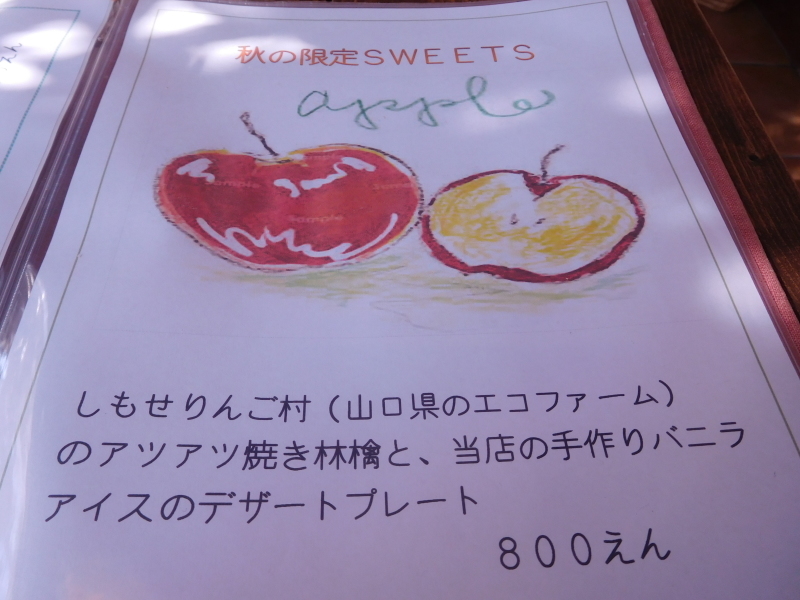 秋の限定ＳＷＥＥＴＳ
apple
sample
sample
sample
しもせりんご村（山口県のエコファーム）
のアツアツ焼き林檎と、当店の手作りバニラ
アイスのデザートプレート
８００えん